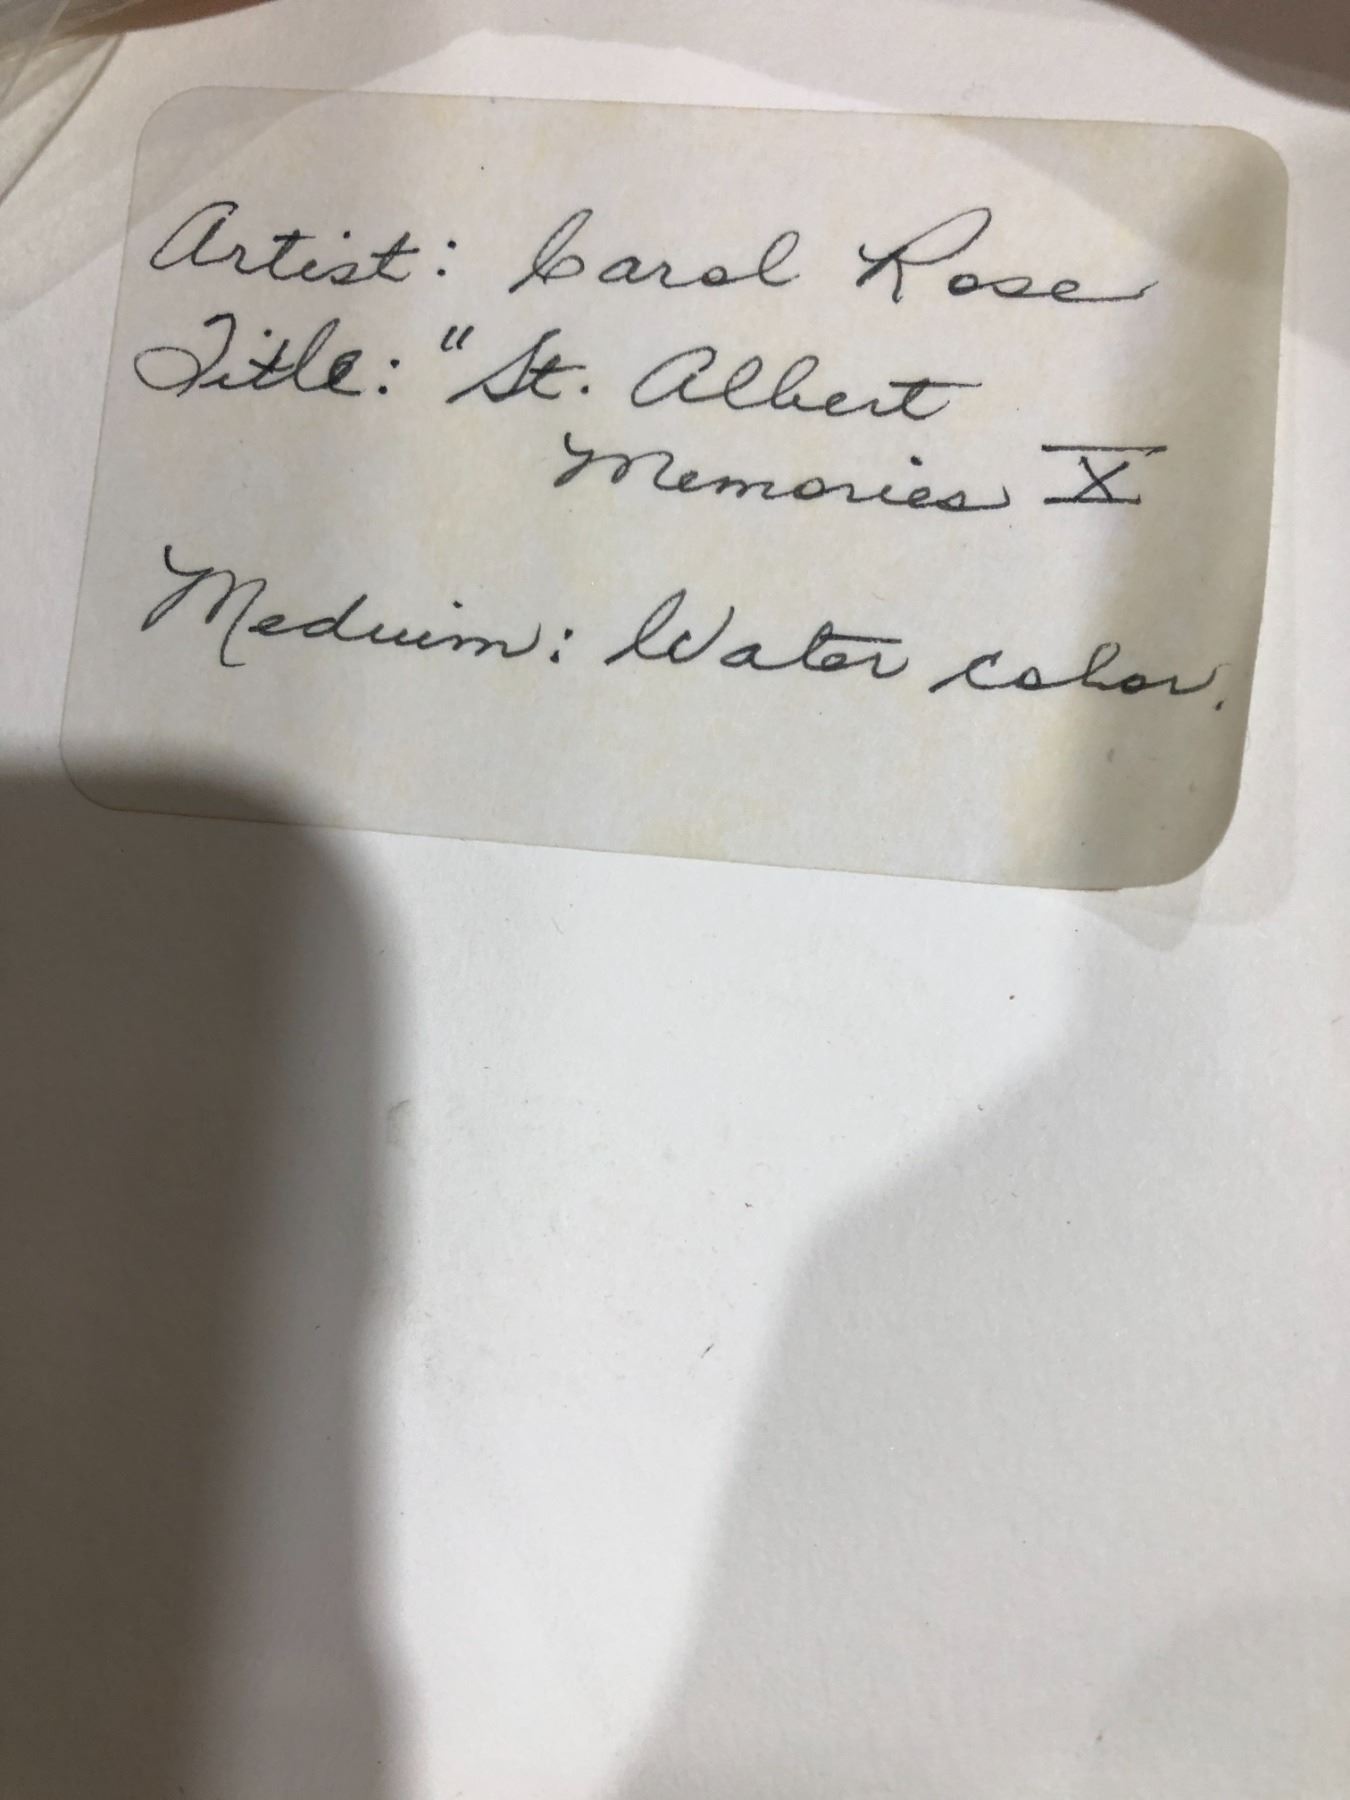 Artist: Carol Rose
Title: "St. Albert
Memories X
Meduim: Water color.